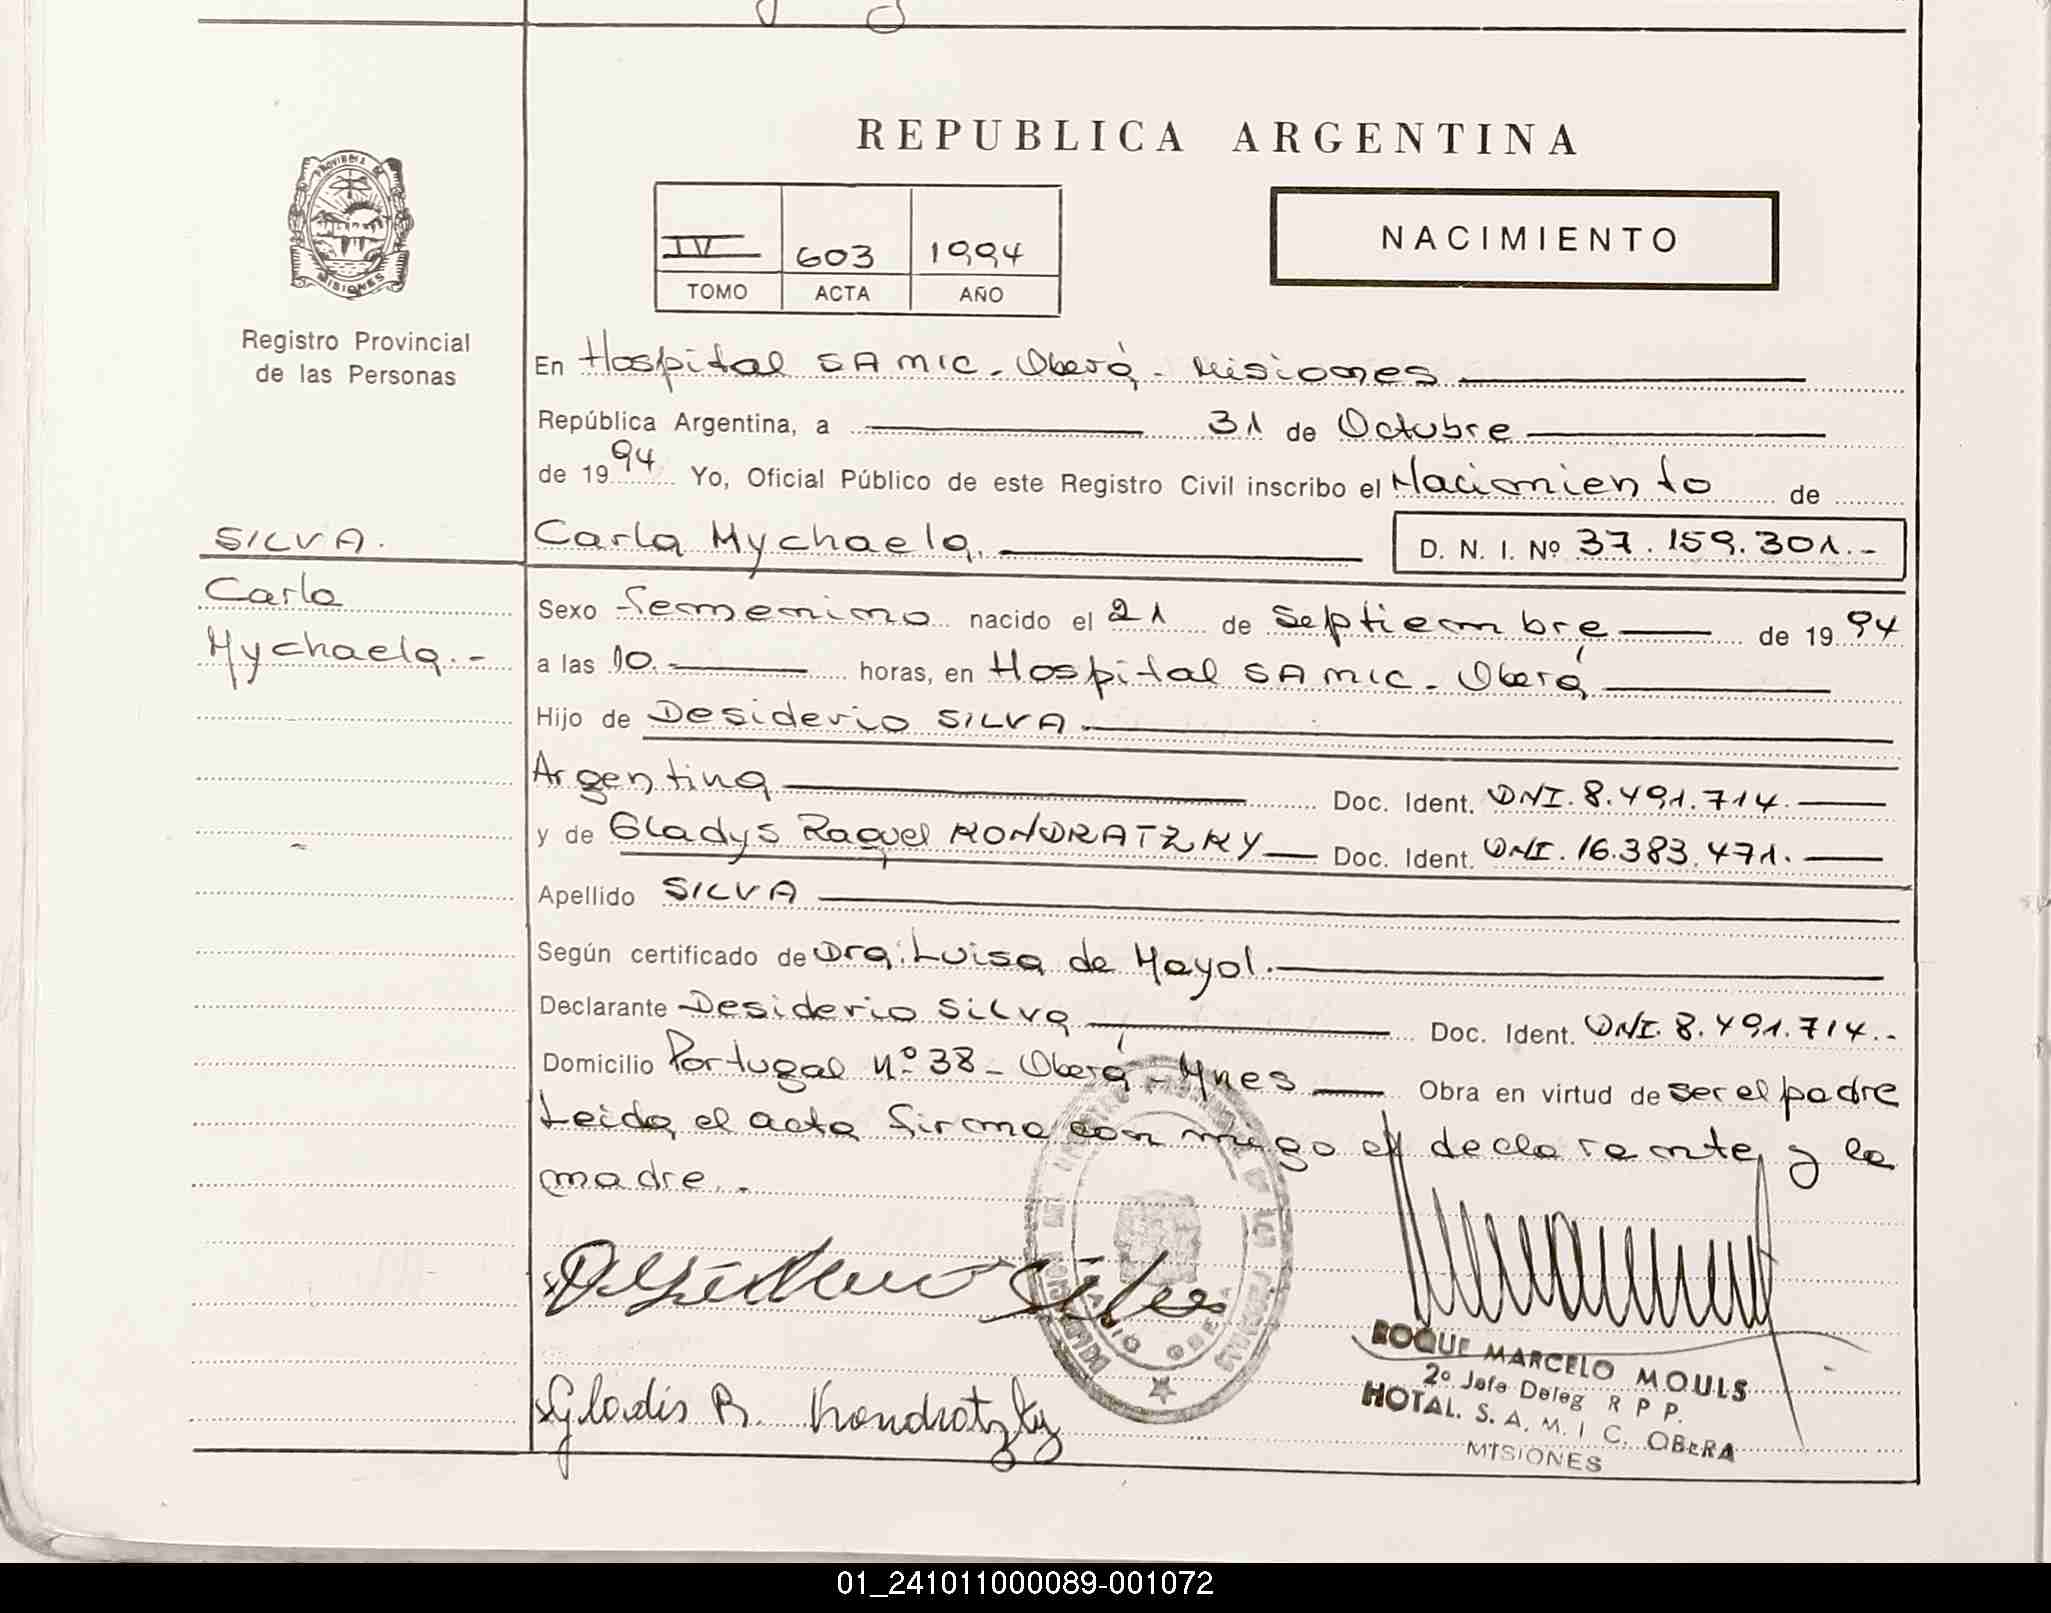 REPUBLICA ARGENTINA
PROVINCIA DE
MISIONES
Registro Provincial
de las Personas
IV 603 1994
TOMO ACTA AÑO
NACIMIENTO
En Hospital SAMIC. Oberá - Misiones
República Argentina, a 31 de Octubre
de 1994 Yo, Oficial Público de este Registro Civil inscribo el Nacimiento de
SILVA.
Carla
Mychaela.-
Carla Mychaela. D. N. I. Nº 37.159.301.-
Sexo Femenino nacido el 21 de Septiembre de 1994
a las 10. horas, en Hospital SAMIC. Oberá
Hijo de Desiderio SILVA
Argentina Doc. Ident. DNI. 8.491.714.
y de Gladys Raquel KONDRATZKY Doc. Ident. DNI. 16.383.471.
Apellido SILVA
Según certificado de Dra. Luisa de Mayol.
Declarante Desiderio Silva Doc. Ident. DNI. 8.491.714.-
Domicilio Portugal nº 38 - Oberá - Mnes Obra en virtud de ser el padre
Leida el acta firma con migo el declarante y la
madre..
Silva
Gladis R. Kondratzky
ROQUE MARCELO MOULS
2º Jefe Deleg R P P.
HOTAL. S. A. M. I C. OBERA
MISIONES
01_241011000089-001072